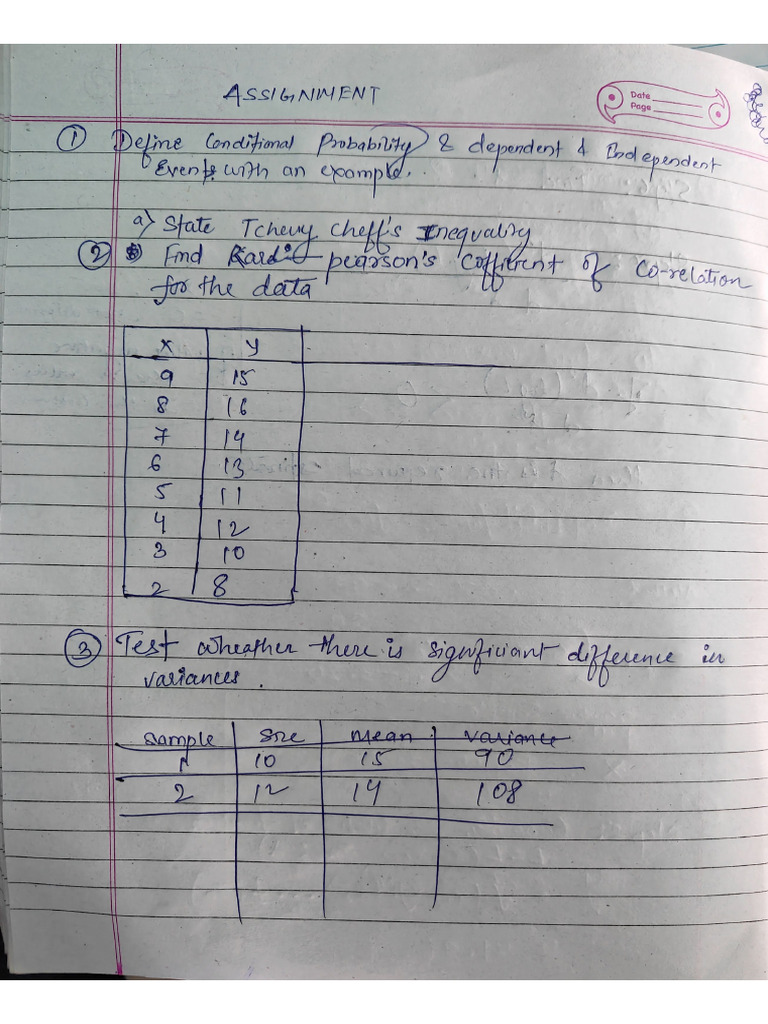 ASSIGNMENT
Date
Page
① Define Conditional Probability & dependent & Independent
Events with an example.
a) State Tchevy cheff's Inequality
② Find Karl pearson's cofficient of co-relation
for the data
x y
9 15
8 16
7 14
6 13
5 11
4 12
3 10
2 8
③ Test wheather there is significiant difference in
variances.
Sample Size Mean Variance
1 10 15 90
2 12 14 108